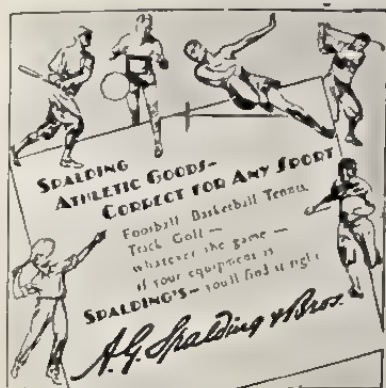 SPALDING
ATHLETIC GOODS—
CORRECT FOR ANY SPORT
Football, Basketball, Tennis,
Track, Golf—
whatever the game—
if your equipment is
SPALDING'S—you'll find it right.
A.G. Spalding & Bros.